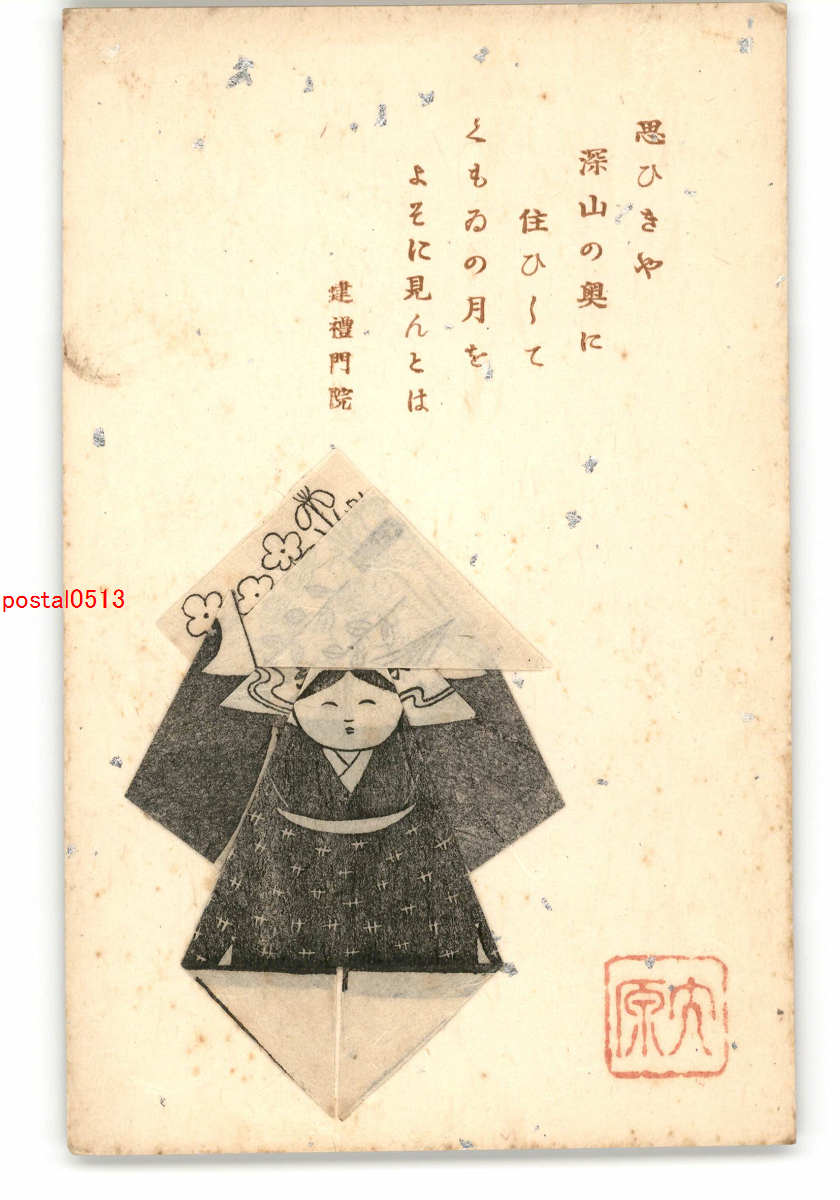 思ひきや
深山の奥に
住ひして
くもゐの月を
よそに見んとは
建禮門院
大原
postal0513